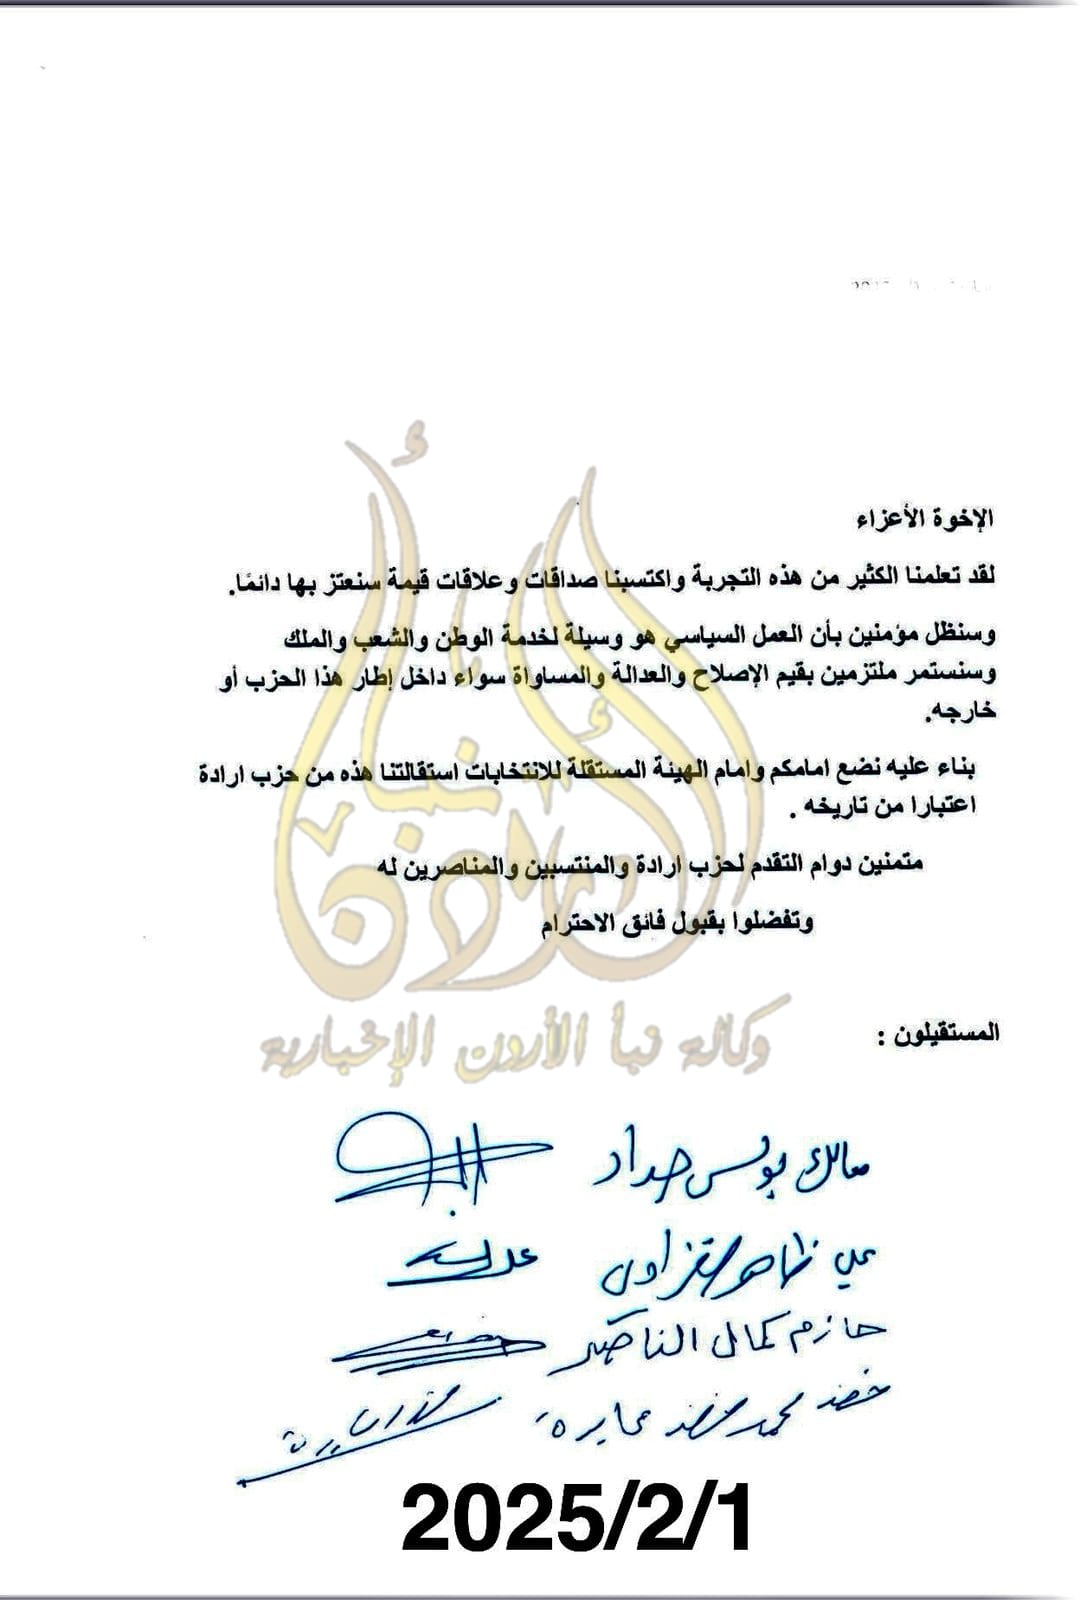 الإخوة الأعزاء
لقد تعلمنا الكثير من هذه التجربة واكتسبنا صداقات وعلاقات قيمة سنعتز بها دائمًا.
وسنظل مؤمنين بأن العمل السياسي هو وسيلة لخدمة الوطن والشعب والملك
وسنستمر ملتزمين بقيم الإصلاح والعدالة والمساواة سواء داخل إطار هذا الحزب أو
خارجه.
بناء عليه نضع امامكم وامام الهيئة المستقلة للانتخابات استقالتنا هذه من حزب ارادة
اعتبارا من تاريخه .
متمنين دوام التقدم لحزب ارادة والمنتسبين والمناصرين له
وتفضلوا بقبول فائق الاحترام
نبأ الأردن
وكالة نبأ الأردن الإخبارية
المستقيلون :
مالك بولس حداد
علي ظاهر
حازم كمال الناصر
خضر محمد خضر عمايرة
2025/2/1